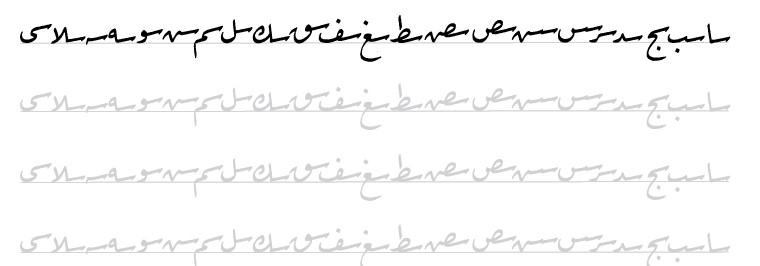 سا سب سج سد سر سس سص سط سغ سف سق سك سل سم سو سه سلا سى
سا سب سج سد سر سس سص سط سغ سف سق سك سل سم سو سه سلا سى
سا سب سج سد سر سس سص سط سغ سف سق سك سل سم سو سه سلا سى
سا سب سج سد سر سس سص سط سغ سف سق سك سل سم سو سه سلا سى